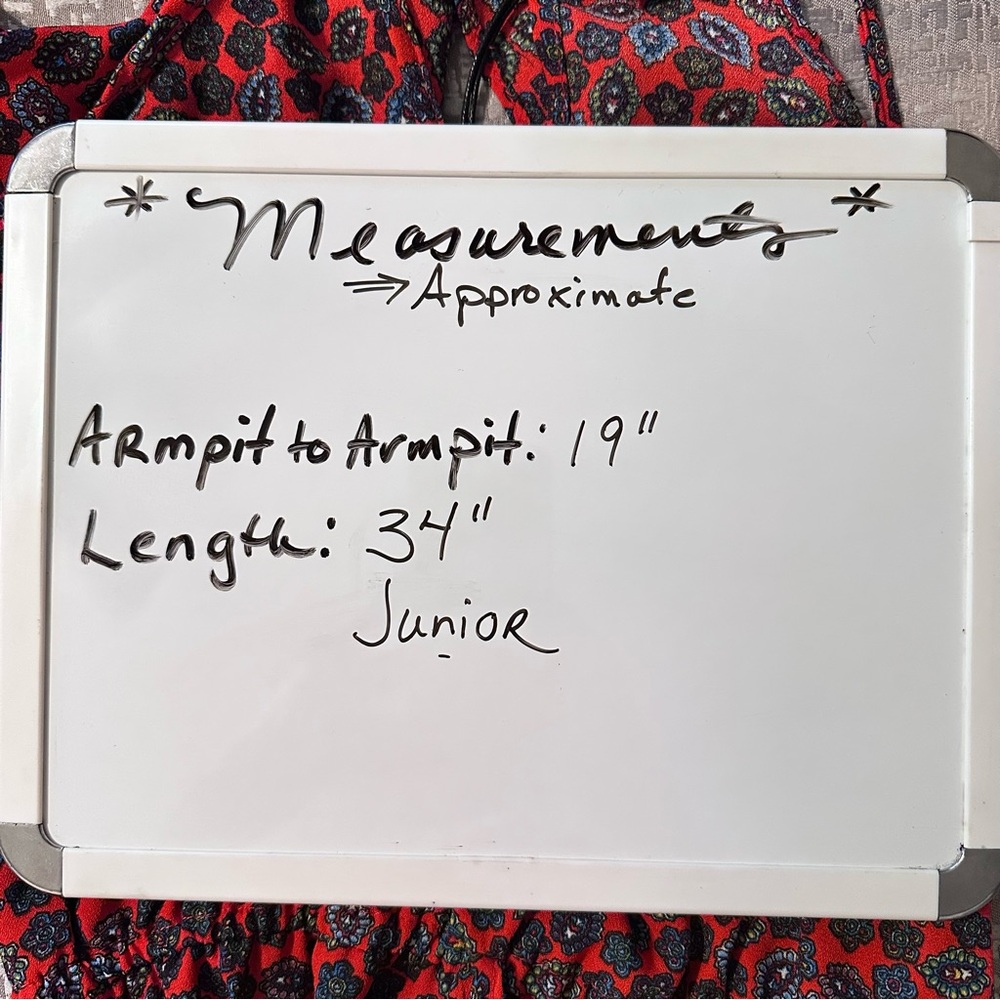 * Measurements *
⇒ Approximate
ARmpit to Armpit: 19"
Length: 34"
JuniOR